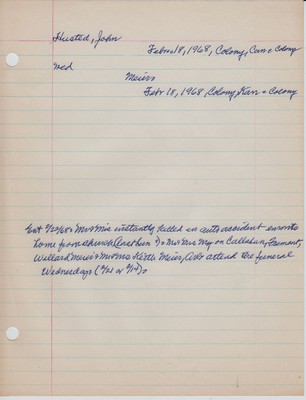 Husted, John
Febr 18, 1968, Colony, Cem = Colony
wed
Meiers
Febr 18, 1968, Colony, Kan = Colony
Ent 2/22/68 = Mr & Mrs instantly killed in auto accident enroute
home from church (last Sun ?) = Mr & Mrs Callahan, Fremont,
Willard Meier & Mr & Mrs Keith Meier, attend the funeral
Wednesday (2/21 or 2/14) =